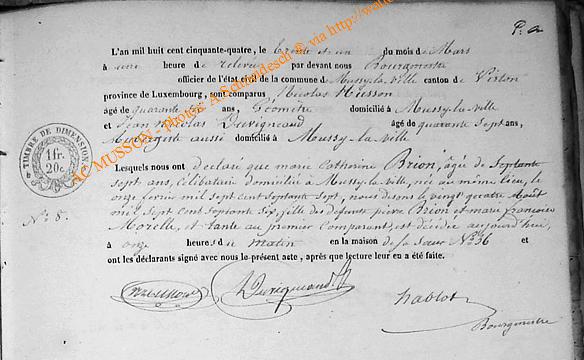 L'an mil huit cent cinquante-quatre, le trente et un du mois de Mars
à une heure de relevée par devant nous Bourgmestre
officier de l'état civil de la commune de Mussy-la-Ville canton de Virton
province de Luxembourg, sont comparus Nicolas Husson
âgé de quarante six ans, Géomètre domicilié à Mussy-la-ville
et Jean Nicolas Duvigneaud âgé de quarante sept ans,
aussi domicilié à Mussy-la-ville
Lesquels nous ont déclaré que marie Catherine Brion, âgée de Septante
Sept ans, célibataire domiciliée à Mussy-la-ville, née au même lieu, le
onze fevrier mil Sept cent Septante Sept, nous disons le vingt quatre Août
mil Sept cent Septante Six, fille des defunts pierre Brion et marie françoise
Morelle, et tante au premier Comparant, est décédée aujourd'hui,
à onze heures du matin en la maison de sa Sœur N° 36 et
ont les déclarants signé avec nous le présent acte, après que lecture leur en a été faite.
TIMBRE DE DIMENSION
1 fr.
20 c.
N° 8.
Duvigneaud
hablot
Bourgmestre
AC MUSSON - Photos: A.Schmidesch © via http://www